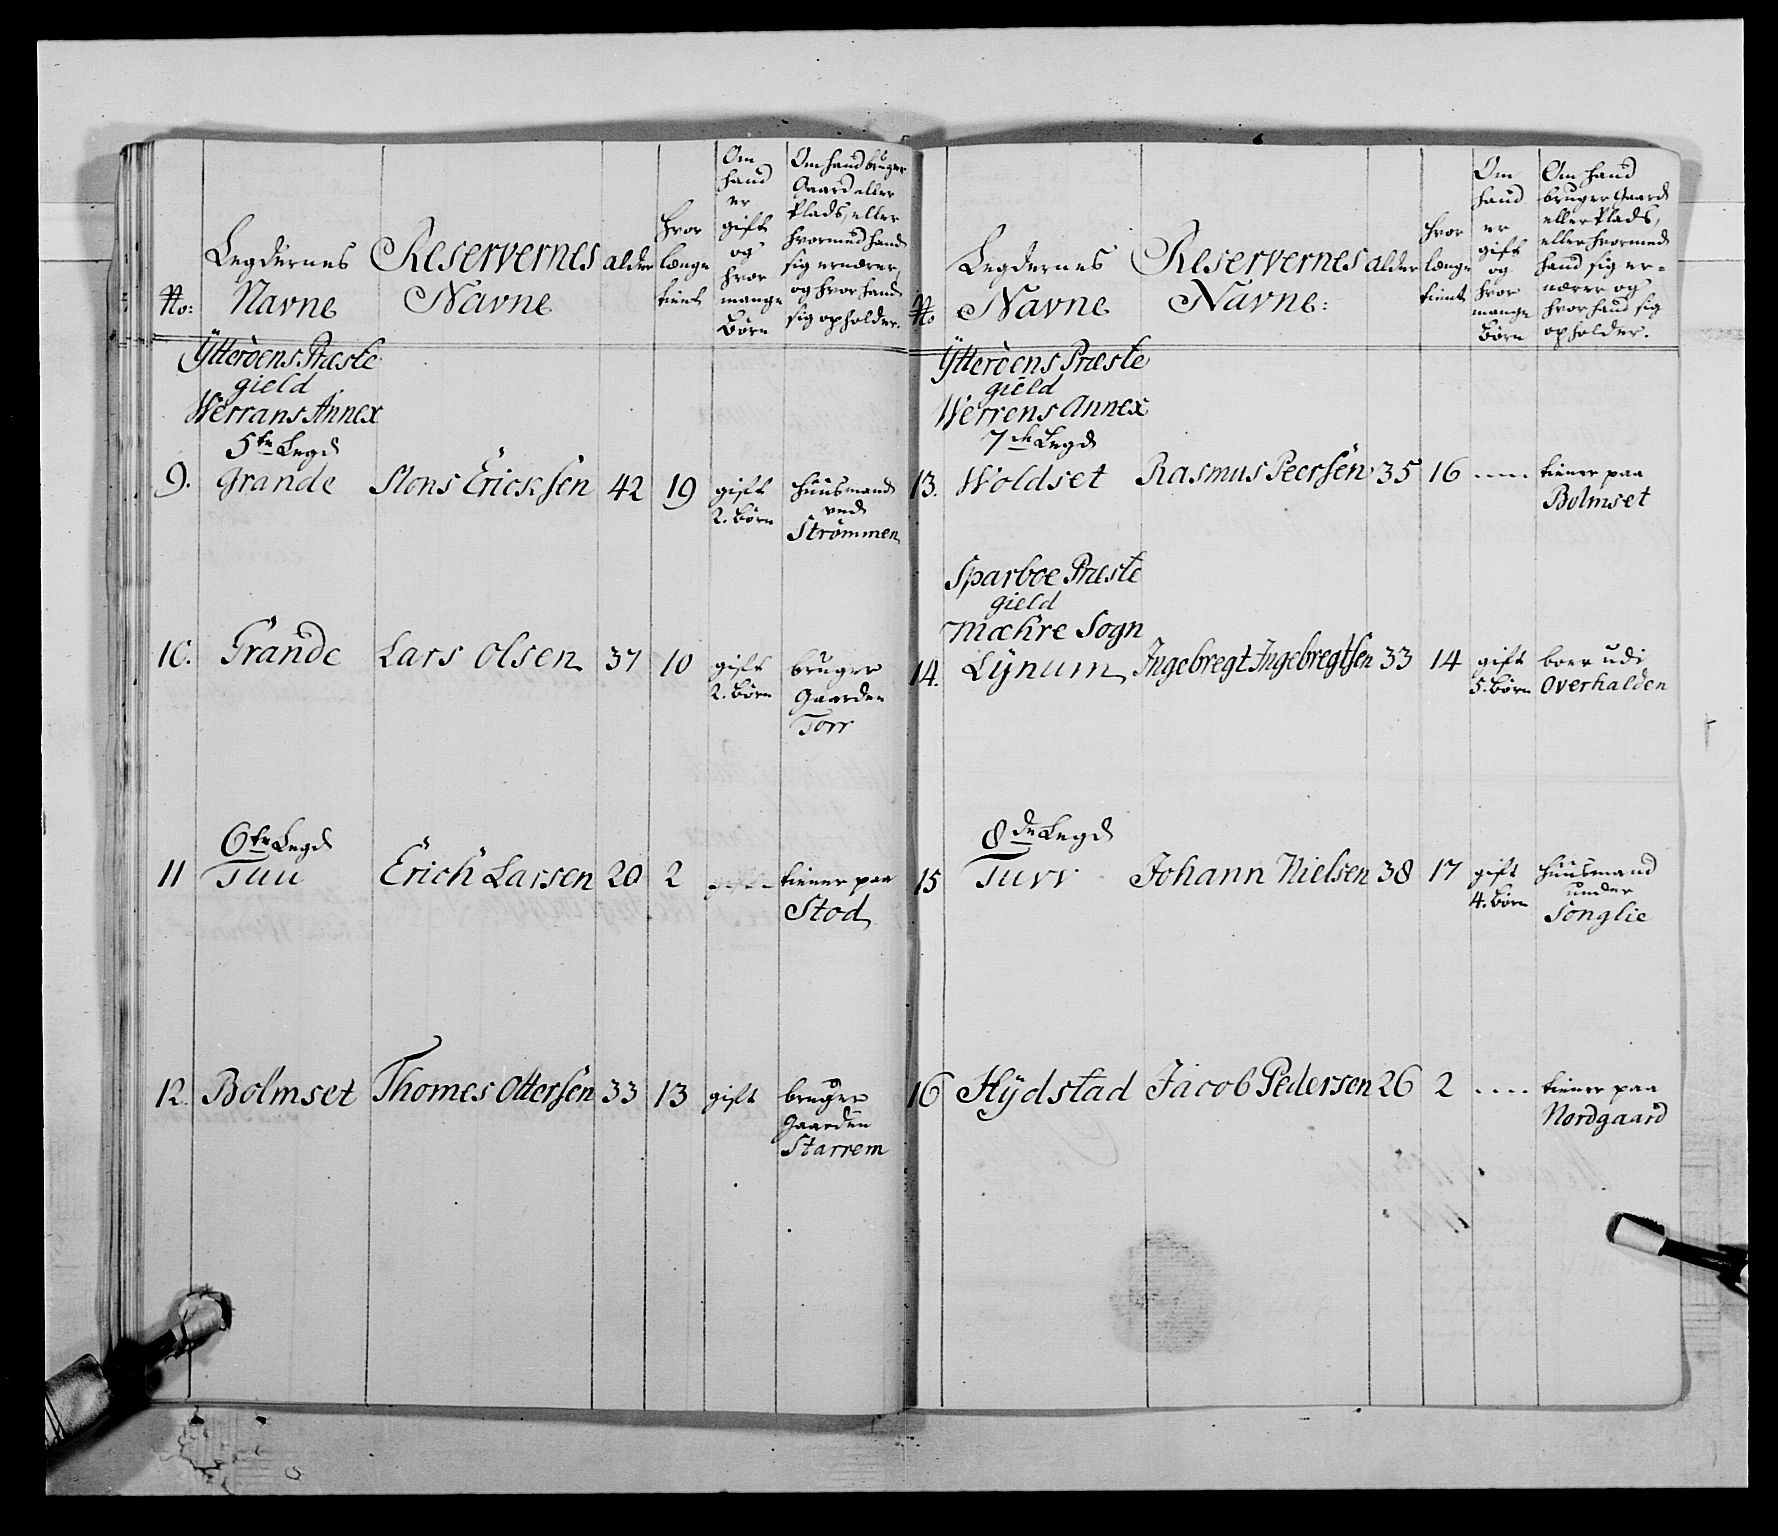 No: Legdernes Navne
Reservernes Navne
alder
hvor længe tient
Om hand er gift og hvor mange Børn
Om hand bruger Gaard eller Plads, eller hvormed hand sig ernærer, og hvor hand sig opholder.
Ÿtterøens Præste
gield
Werrans Annex
5te Legd
9. Grande Mons Ericksen 42 19 gift 2. Børn Huusmand ved Strømmen
10. Grande Lars Olsen 37 10 gift 2. Børn bruger Gaarden Torr
6te Legd
11 Tuu Erich Larsen 20 2 tiener paa Stod
12. Bolmset Thomes Ottersen 33 13 gift bruger Gaarden Starrem
No Legdernes Navne
Reservernes Navne:
alder
hvor længe tient
Om hand er gift og hvor mange Børn
Om hand bruger Gaard eller Plads, eller hvormed hand sig er=nærer og hvor hand sig opholder.
Ÿtterøens Præste
gield
Werrens Annex
7de Legd
13. Woldset Rasmus Peersen 35 16 ---- tiener paa Bolmset
Sparboe Præste
gield
Mæhre Sogn
14. Lÿnum Ingebregt Ingebregtsen 33 14 gift 5. Børn boer udi Overhalden
8de Legd
15 Tuvv Johann Nielsen 38 17 gift 4. Børn Huusmand under Songlie
16 Hÿdstad Jacob Pedersen 26 2 ---- tiener paa Nordgaard